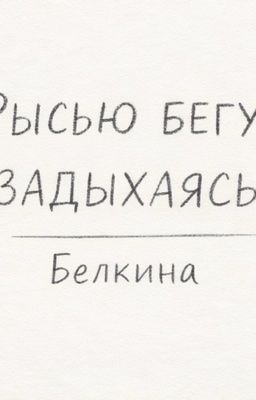 РЫСЬЮ БЕГУ
ЗАДЫХАЯСЬ
Белкина